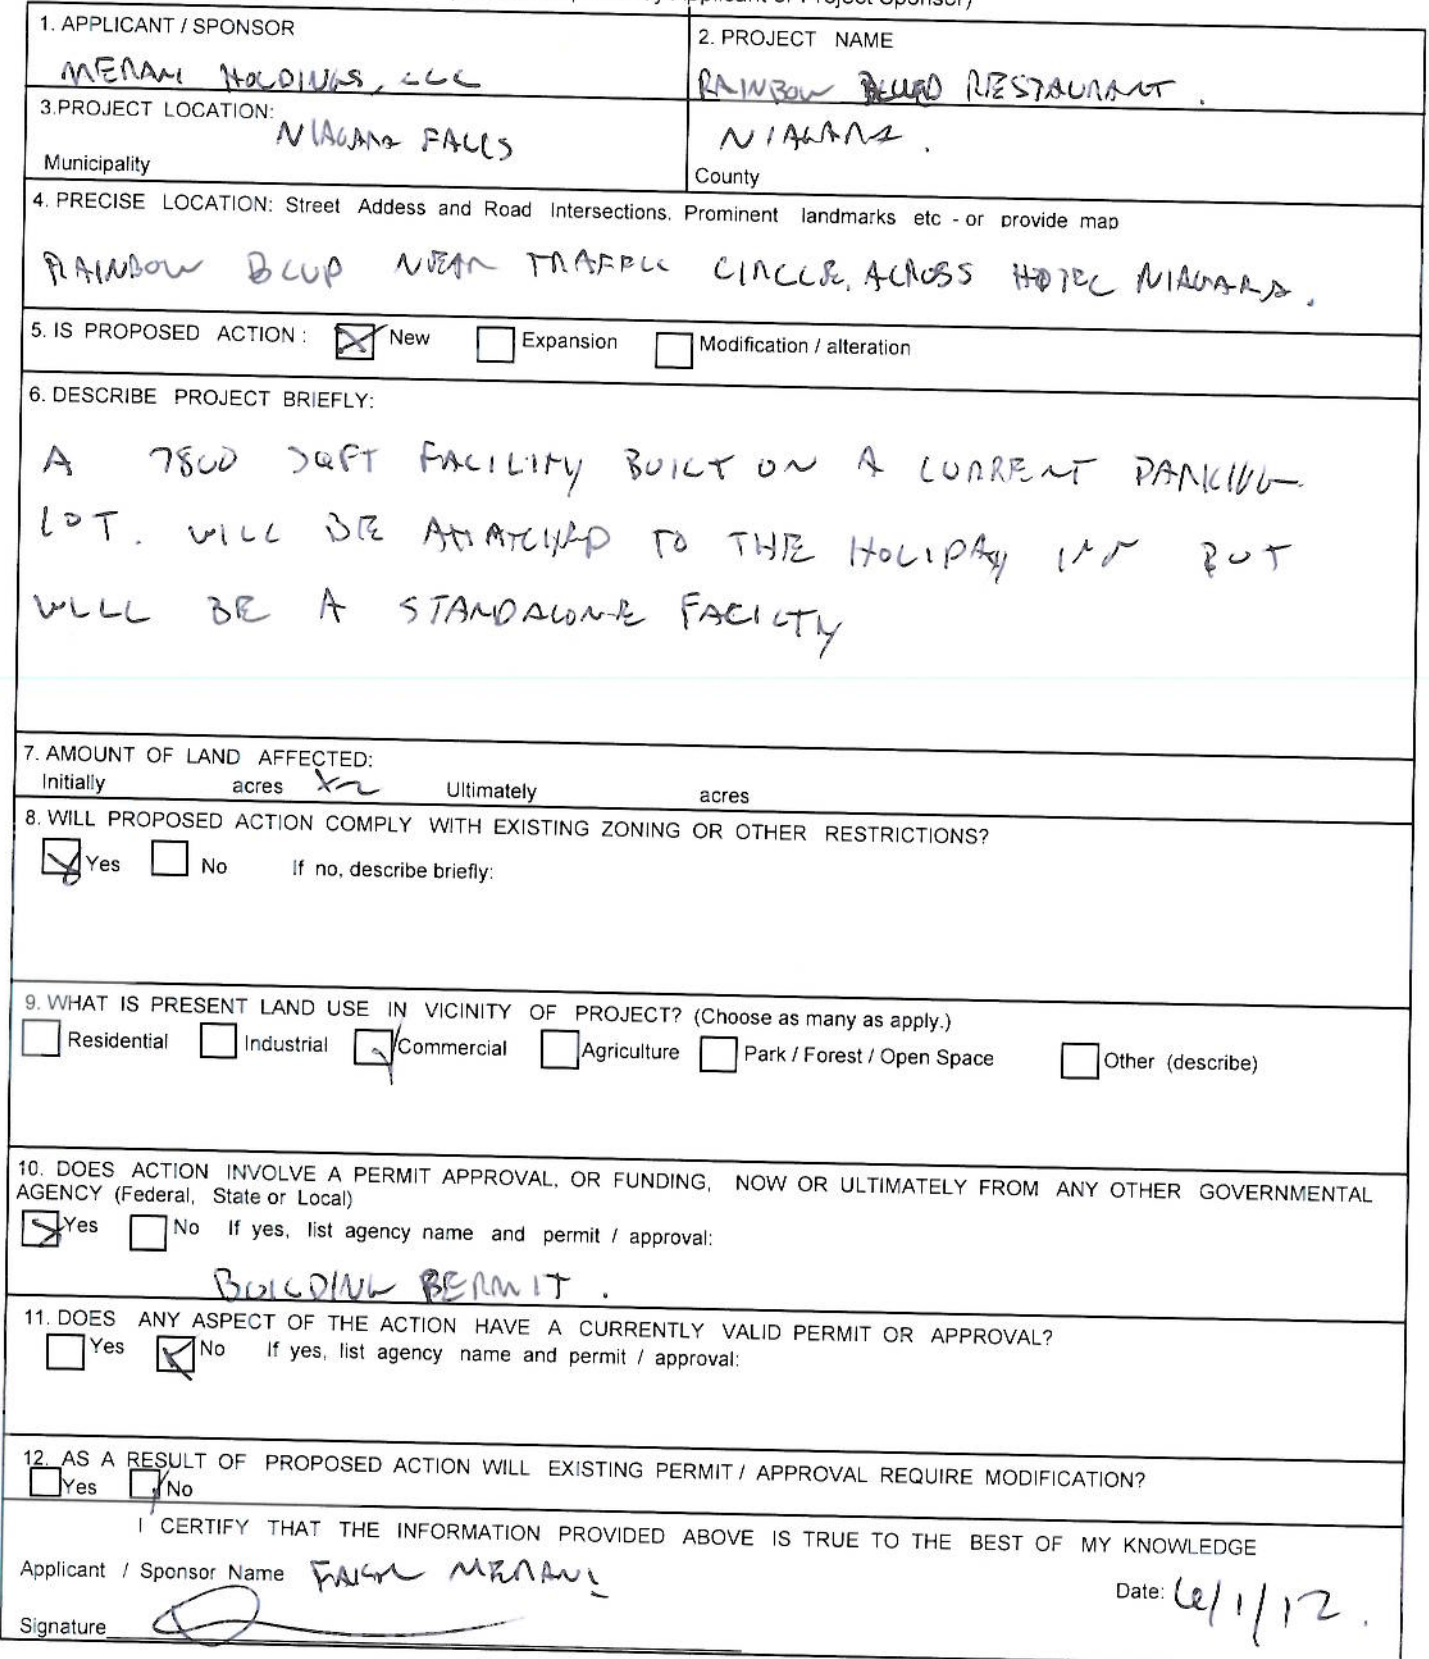 Applicant or Project Sponsor)
1. APPLICANT / SPONSOR
MERANI HOLDINGS, LLC
2. PROJECT NAME
RAINBOW BLVD RESTAURANT.
3.PROJECT LOCATION:
NIAGARA FALLS
Municipality
NIAGARA.
County
4. PRECISE LOCATION: Street Addess and Road Intersections. Prominent landmarks etc - or provide map
RAINBOW BLVD NEAR TRAFFIC CIRCLE, ACROSS HOTEL NIAGARA.
5. IS PROPOSED ACTION : New Expansion Modification / alteration
6. DESCRIBE PROJECT BRIEFLY:
A 7800 SQFT FACILITY BUILT ON A CURRENT PARKING
LOT. WILL BE ATTATCHED TO THE HOLIDAY INN BUT
WILL BE A STANDALONE FACILTY
7. AMOUNT OF LAND AFFECTED:
Initially acres Ultimately acres
8. WILL PROPOSED ACTION COMPLY WITH EXISTING ZONING OR OTHER RESTRICTIONS?
Yes No If no, describe briefly:
9. WHAT IS PRESENT LAND USE IN VICINITY OF PROJECT? (Choose as many as apply.)
Residential Industrial Commercial Agriculture Park / Forest / Open Space Other (describe)
10. DOES ACTION INVOLVE A PERMIT APPROVAL, OR FUNDING, NOW OR ULTIMATELY FROM ANY OTHER GOVERNMENTAL
AGENCY (Federal, State or Local)
Yes No If yes, list agency name and permit / approval:
BUILDING PERMIT.
11. DOES ANY ASPECT OF THE ACTION HAVE A CURRENTLY VALID PERMIT OR APPROVAL?
Yes No If yes, list agency name and permit / approval:
12. AS A RESULT OF PROPOSED ACTION WILL EXISTING PERMIT / APPROVAL REQUIRE MODIFICATION?
Yes No
I CERTIFY THAT THE INFORMATION PROVIDED ABOVE IS TRUE TO THE BEST OF MY KNOWLEDGE
Applicant / Sponsor Name FAISAL MERANI
Date: 6/1/12.
Signature